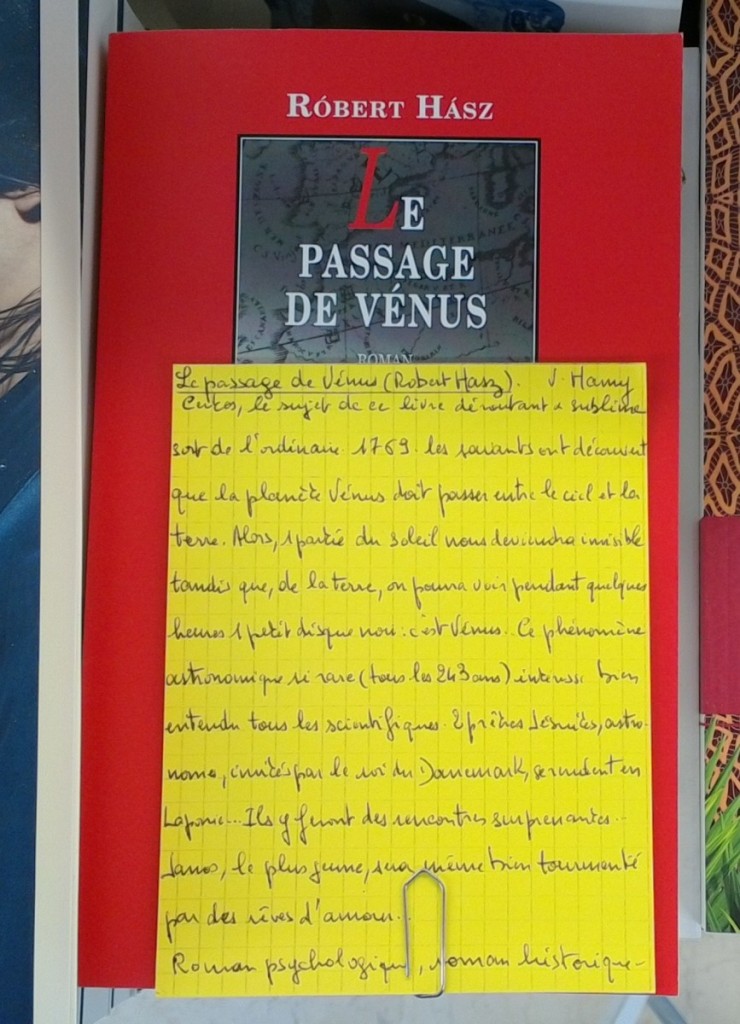 RÓBERT HÁSZ
LE
PASSAGE
DE VÉNUS
ROMAN
Le passage de Vénus (Robert Hasz). V. Hamy
le sujet de ce livre déroutant & sublime
sort de l'ordinaire. 1769. les savants ont découvert
que la planète Vénus doit passer entre le ciel et la
terre. Alors, 1 partie du soleil nous deviendra invisible
tandis que, de la terre, on pourra voir pendant quelques
heures 1 petit disque noir : c'est Vénus. Ce phénomène
astronomique si rare (tous les 243 ans) intéresse bien
entendu tous les scientifiques. 2 prêtres Jésuites, astro-
nome, invités par le roi du Danemark, se rendent en
Laponie... Ils y feront des rencontres surprenantes..
Janos, le plus jeune, sera même bien tourmenté
par des rêves d'amour..
Roman psychologique, roman historique-